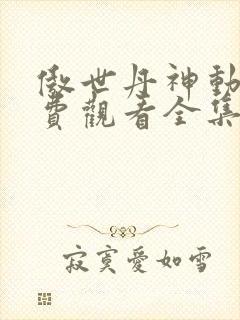 傲世丹神動
費觀看全集
寂寞愛如雪